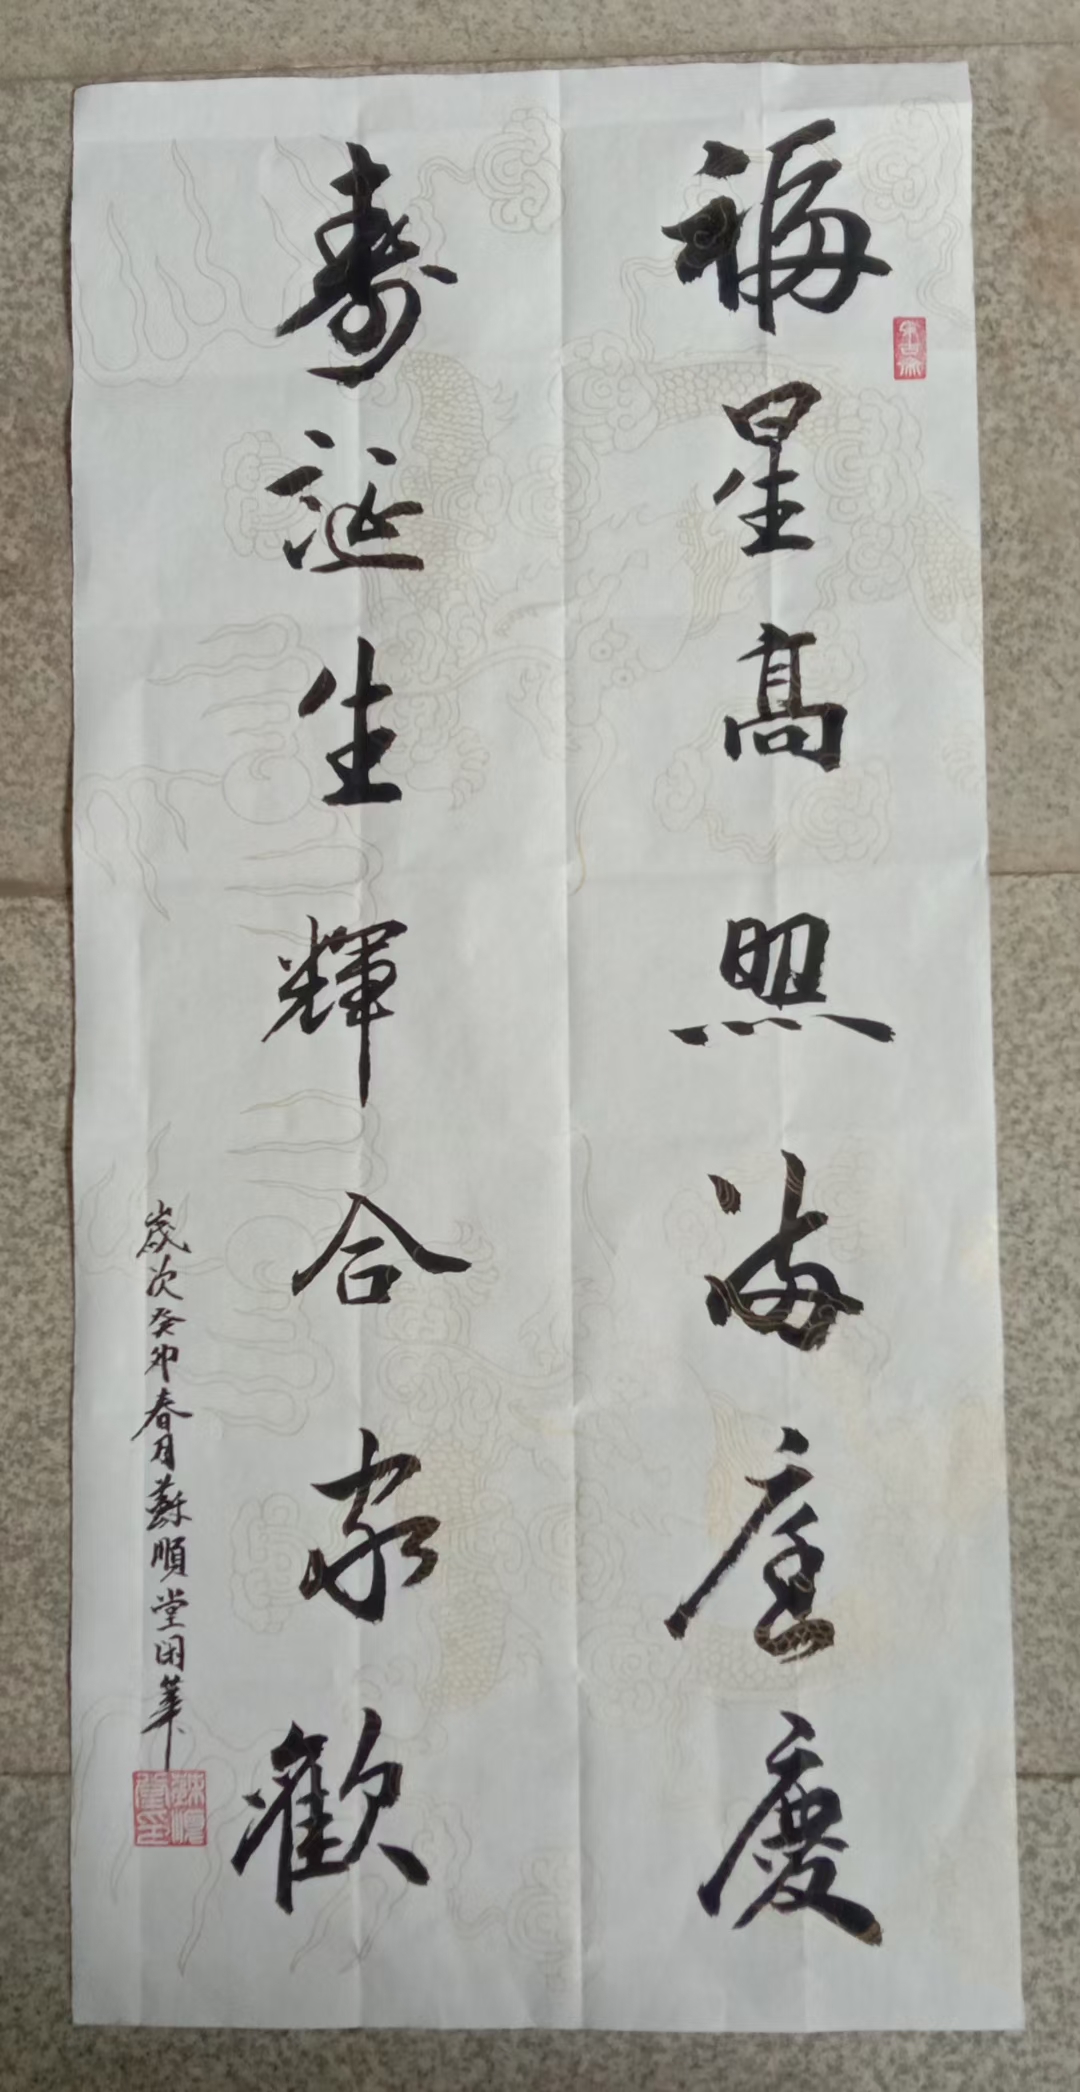 福星高照滿庭慶
壽誕生輝合家歡
歲次癸卯春月蘇順堂閑筆